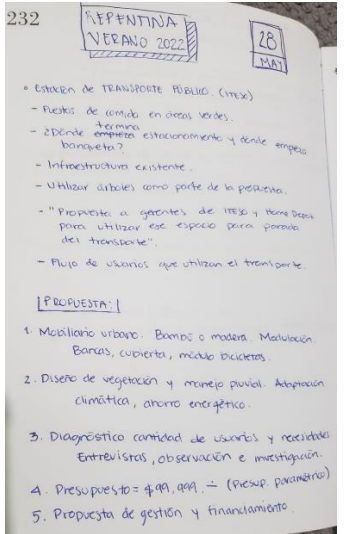 232
REPENTINA
VERANO 2022
28
MAY
• Estación de TRANSPORTE PÚBLICO. (ITESO)
- Puestos de comida en áreas verdes.
- ¿Dónde termina estacionamiento y dónde empieza
banqueta?
- Infraestructura existente.
- Utilizar árboles como parte de la propuesta.
- "Propuesta a gerentes de ITESO y Home Depot
para utilizar ese espacio para parada
del transporte".
- Flujo de usuarios que utilizan el transporte.
PROPUESTA:
1. Mobiliario urbano. Bambú o madera. Modulación.
Bancas, cubierta, módulo bicicletas.
2. Diseño de vegetación y manejo pluvial. Adaptación
climática, ahorro energético.
3. Diagnóstico cantidad de usuarios y necesidades
Entrevistas, observación e investigación.
4. Presupuesto = $99,999. ÷ (Presup. paramétrico)
5. Propuesta de gestión y financiamiento.